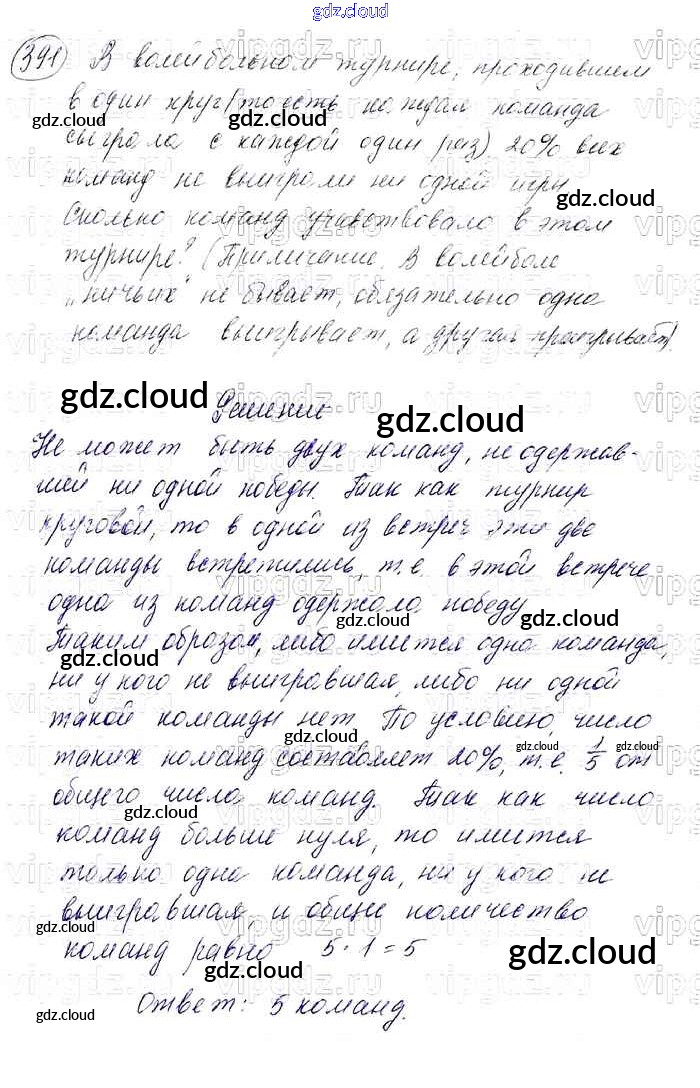 gdz.cloud
391 В волейбольном турнире, проходившем
в один круг (то есть каждая команда
сыграла с каждой один раз) 20% всех
команд не выиграли ни одной игры
Сколько команд участвовало в этом
турнире? (Примечание. В волейболе
„ничьих" не бывает, обязательно одна
команда выигрывает, а другая проигрывает).
Решение
Не может быть двух команд, не одержав-
шей ни одной победы. Так как турнир
круговой, то в одной из встреч эти две
команды встретились, т.е. в этой встрече
одна из команд одержала победу
Таким образом, либо имеется одна команда,
ни у кого не выигравшая, либо ни одной
такой команды нет. По условию, число
таких команд составляет 20%, т.е. 1/5 от
общего числа команд. Так как число
команд больше нуля, то имеется
только одна команда, ни у кого не
выигравшая, и общее количество
команд равно 5 · 1 = 5
Ответ: 5 команд.